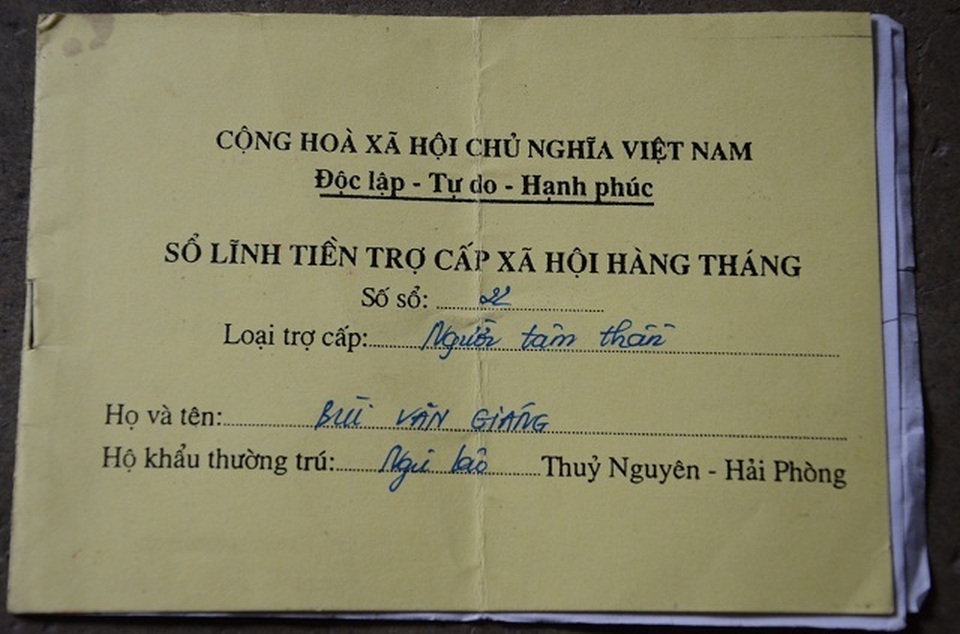 CỘNG HOÀ XÃ HỘI CHỦ NGHĨA VIỆT NAM
Độc lập - Tự do - Hạnh phúc
SỔ LĨNH TIỀN TRỢ CẤP XÃ HỘI HÀNG THÁNG
Số sổ: 22
Loại trợ cấp: Người tâm thần
Họ và tên: BÙI VĂN GIÁNG
Hộ khẩu thường trú: Ngũ Lão Thuỷ Nguyên - Hải Phòng